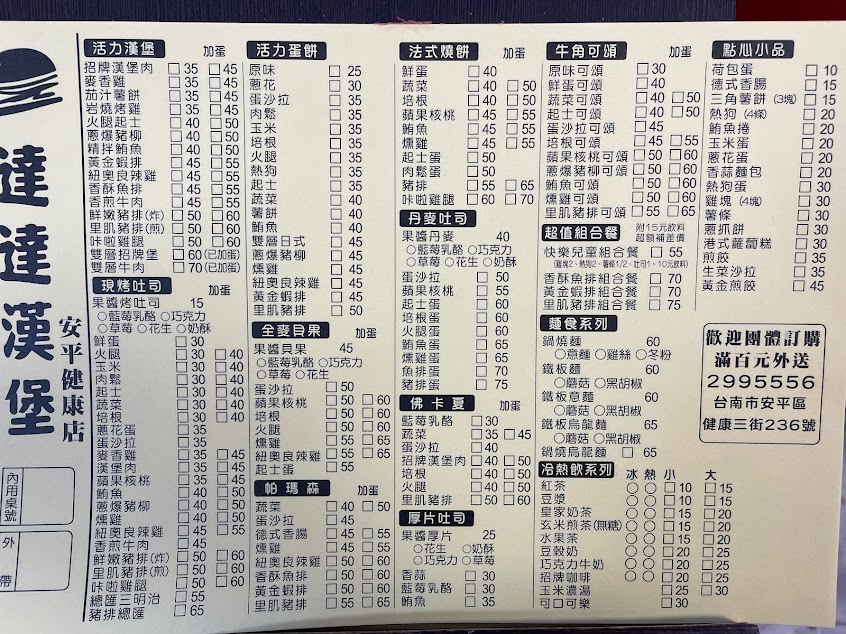 達達漢堡
安平健康店
內用桌號
外帶
活力漢堡 加蛋
招牌漢堡肉 □35 □45
麥香雞 □35 □45
茄汁薯餅 □35 □45
岩燒烤雞 □35 □45
火腿起士 □40 □50
蔥爆豬柳 □40 □50
精拌鮪魚 □40 □50
黃金蝦排 □45 □55
紐奧良辣雞 □45 □55
香酥魚排 □45 □55
香煎牛肉 □45 □55
鮮嫩豬排(炸) □50 □60
里肌豬排(煎) □50 □60
咔啦雞腿 □50 □60
雙層招牌堡 □60(已加蛋)
雙層牛肉 □70(已加蛋)
現烤吐司 加蛋
果醬烤吐司 15
○藍莓乳酪 ○巧克力
○草莓 ○花生 ○奶酥
鮮蛋 □30
火腿 □30 □40
玉米 □30 □40
肉鬆 □30 □40
起士 □30 □40
蔬菜 □30 □40
培根 □30 □40
蔥花蛋 □35
蛋沙拉 □35
麥香雞 □35 □45
漢堡肉 □35 □45
蘋果核桃 □35 □45
鮪魚 □40 □50
蔥爆豬柳 □40 □50
燻雞 □40 □50
紐奧良辣雞 □45 □55
香煎牛肉 □45 □55
鮮嫩豬排(炸) □50 □60
里肌豬排(煎) □50 □60
咔啦雞腿 □50 □60
總匯三明治 □55
豬排總匯 □65
活力蛋餅
原味 □25
蔥花 □30
蛋沙拉 □35
肉鬆 □35
玉米 □35
培根 □35
火腿 □35
熱狗 □35
起士 □35
蔬菜 □40
薯餅 □40
鮪魚 □40
雙層日式 □45
蔥爆豬柳 □45
燻雞 □45
紐奧良辣雞 □45
黃金蝦排 □45
里肌豬排 □50
全麥貝果 加蛋
果醬貝果 45
○藍莓乳酪 ○巧克力
○草莓 ○花生
蛋沙拉 □50
蘋果核桃 □50 □60
培根 □50 □60
火腿 □50 □60
燻雞 □55 □65
紐奧良辣雞 □55 □65
起士蛋 □55
帕瑪森 加蛋
蔬菜 □40 □50
蛋沙拉 □45
德式香腸 □45 □55
燻雞 □45 □55
紐奧良辣雞 □50 □60
香酥魚排 □50 □60
黃金蝦排 □50 □60
里肌豬排 □55 □65
法式燒餅 加蛋
鮮蛋 □40
蔬菜 □40 □50
培根 □40 □50
蘋果核桃 □45 □55
鮪魚 □45 □55
燻雞 □45 □55
起士蛋 □50
肉鬆蛋 □50
豬排 □55 □65
咔啦雞腿 □60 □70
丹麥吐司
果醬丹麥 40
○藍莓乳酪 ○巧克力
○草莓 ○花生 ○奶酥
蛋沙拉 □50
蘋果核桃 □55
起士蛋 □60
培根蛋 □60
火腿蛋 □60
鮪魚蛋 □65
燻雞蛋 □65
魚排蛋 □70
豬排蛋 □75
佛卡夏 加蛋
藍莓乳酪 □30
蔬菜 □35 □45
蛋沙拉 □40
招牌漢堡肉 □40 □50
培根 □40 □50
火腿 □40 □50
里肌豬排 □50 □60
厚片吐司
果醬厚片 25
○花生 ○奶酥
○巧克力 ○草莓
香蒜 □30
藍莓乳酪 □30
鮪魚 □35
牛角可頌 加蛋
原味可頌 □30
鮮蛋可頌 □40
蔬菜可頌 □40 □50
起士可頌 □40 □50
蛋沙拉可頌 □45
培根可頌 □45 □55
蘋果核桃可頌 □50 □60
蔥爆豬柳可頌 □50 □60
鮪魚可頌 □50 □60
燻雞可頌 □50 □60
里肌豬排可頌 □55 □65
超值組合餐 附15元飲料 超額補差價
快樂兒童組合餐 □55
(雞塊2、熱狗2、薯條1/2、吐司1、10元飲料)
香酥魚排組合餐 □70
黃金蝦排組合餐 □70
里肌豬排組合餐 □75
麵食系列
鍋燒麵 60
○意麵 ○雞絲 ○冬粉
鐵板麵 60
○蘑菇 ○黑胡椒
鐵板意麵 60
○蘑菇 ○黑胡椒
鐵板烏龍麵 65
○蘑菇 ○黑胡椒
鍋燒烏龍麵 □65
冷熱飲系列 冰 熱 小 大
紅茶 ○ ○ □10 □15
豆漿 ○ ○ □10 □15
皇家奶茶 ○ ○ □15 □20
玄米煎茶(無糖) ○ ○ □15 □20
水果茶 ○ ○ □15 □20
豆穀奶 ○ ○ □20 □25
巧克力牛奶 ○ ○ □20 □25
招牌咖啡 ○ ○ □20 □25
玉米濃湯 □20 □25
可口可樂 □25 □30
點心小品
荷包蛋 □10
德式香腸 □15
三角薯餅(3塊) □15
熱狗(4條) □20
鮪魚捲 □20
玉米蛋 □20
蔥花蛋 □20
香蒜麵包 □20
熱狗蛋 □30
雞塊(4塊) □30
薯條 □30
蔥抓餅 □30
港式蘿蔔糕 □30
煎餃 □35
生菜沙拉 □35
黃金煎餃 □45
歡迎團體訂購
滿百元外送
2995556
台南市安平區
健康三街236號